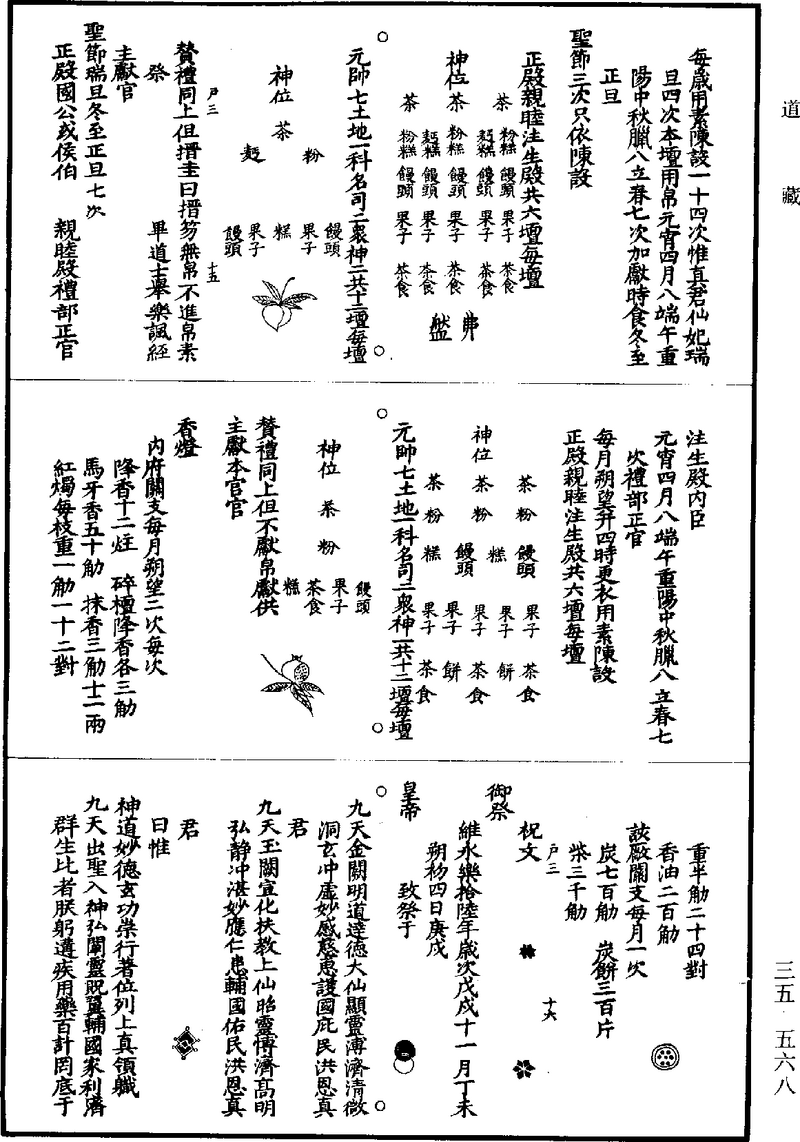 道藏
每歲用素陳設一十四次惟真君仙妃瑞
旦四次本壇用帛元宵四月八端午重
陽中秋臘八立春七次加獻時食冬至
正旦
聖節三次只依陳設
正殿親睦注生殿共六壇每壇
茶 粉糕 饅頭 果子 茶食
茶 麪糕 饅頭 果子 茶食
神位 茶 粉糕 饅頭 果子 茶食
麪糕 饅頭 果子 茶食
茶 粉糕 饅頭 果子 茶食
元帥七土地一科名司二衆神二共十二壇每壇
粉 饅頭
果子
神位 茶 糕
果子
麪 饅頭
戶三 十五
贊禮同上但搢圭曰搢笏無帛不進帛素
祭 畢道士舉樂諷經
主獻官
聖節瑞旦冬至正旦七次
正殿國公或侯伯 親睦殿禮部正官
注生殿内臣
元宵四月八端午重陽中秋臘八立春七
次禮部正官
每月朔望并四時更衣用素陳設
正殿親睦注生殿共六壇每壇
茶 粉 饅頭 果子 茶食
糕 果子 餅
神位 茶 粉 饅頭 果子 茶食
糕 果子 餅
茶 粉 果子 茶食
元帥七土地一科名司二衆神二共十二壇每壇
饅頭
果子
神位 茶 粉 茶食
糕
贊禮同上但不獻帛獻供
主獻本宫官
香燈
内府關支每月朔望二次每次
降香十二炷 碎檀降香各三觔
馬牙香五十觔 抹香三觔十二兩
紅燭每枝重一觔一十二對
重半觔二十四對
香油二百觔
該廠關支每月一次
炭七百觔 炭餅三百斤
柴三千觔
戶三 十六
祝文
御祭
維永樂拾陸年歲次戊戌十一月丁未
朔初四日庚戌
皇帝 致祭于
九天金闕明道達德大仙顯靈溥濟清微
洞玄冲虚妙感慈惠護國庇民洪恩真
君
九天玉闕宣化扶教上仙昭靈博濟高明
弘靜冲湛妙應仁惠輔國佑民洪恩真
君
曰惟
神道妙德玄功崇行著位列上真領軄
九天出聖入神弘闡靈貺翼輔國家利濟
群生比者朕躬遘疾用藥百計罔底于
三五 五六八